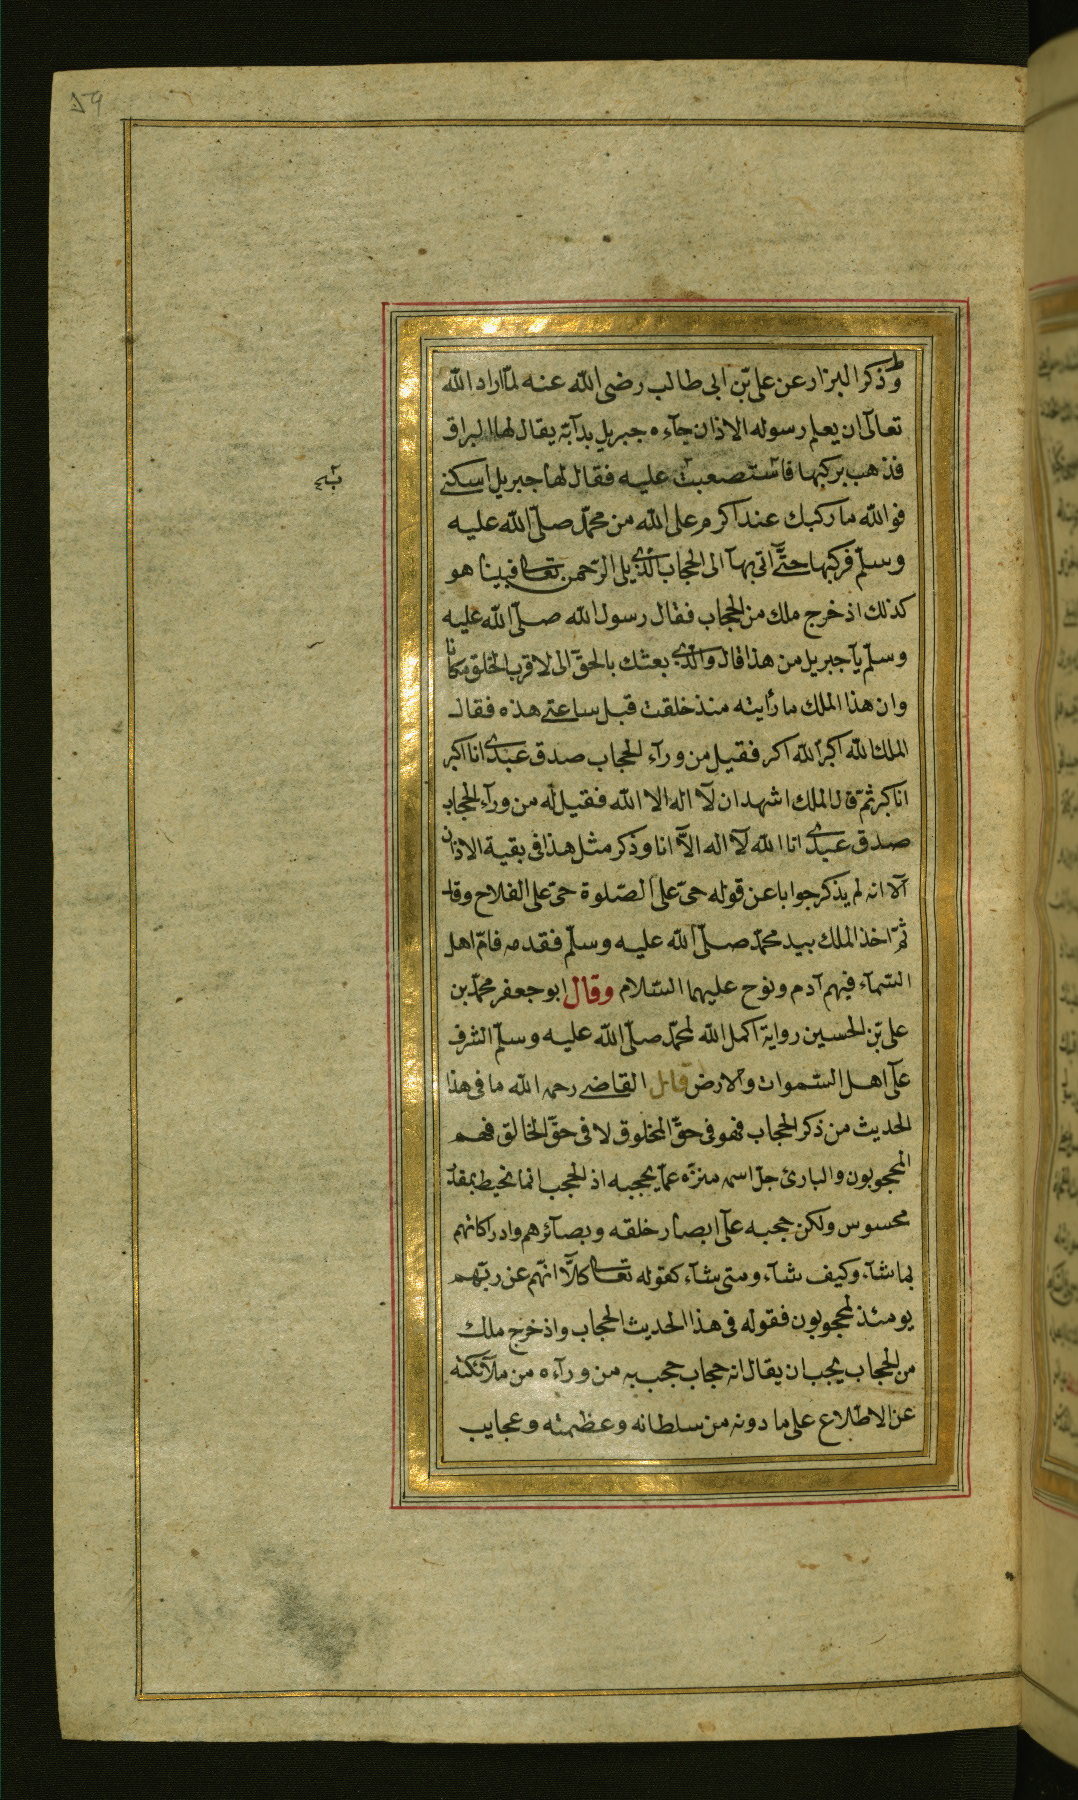 وذكر البزار عن علی بن ابی طالب رضی الله عنه لمّا اراد الله
تعالی ان یعلم رسوله الاذان جآءه جبریل بدآبة یقال لها البراق
فذهب یرکبها فاستصعبت علیه فقال لها جبریل اسکنے
فوالله ما رکبك عند اکرم علی الله من محمّد صلّی الله علیه
وسلّم فرکبها حتّٰی اتی بها الی الحجاب الّذی یلی الرّحمن تعالی فبینا هو
کذلك اذ خرج ملك من الحجاب فقال رسول الله صلّی الله علیه
وسلّم یآ جبریل من هذا قال والّذی بعثك بالحقّ انی لاقرب الخلق مکانا
وان هذا الملك ما رأیته منذ خلقت قبل ساعتے هذه فقال
الملك الله اکبر الله اکر فقیل من ورآء الحجاب صدق عبدی انا اکبر
انا کبر ثمّ قال الملك اشهد ان لآ اله الا الله فقیل له من ورآء الحجاب
صدق عبدی انا الله لآ اله الاّ انا وذکر مثل هذا فی بقیة الاذان
آلا انه لم یذکر جوابا عن قوله حیّ علی الصّلوة حیّ علی الفلاح وقال
ثمّ اخذ الملك بید محمّد صلّی الله علیه وسلّم فقدمه فامّ اهل
السّمآء فیهم آدم ونوح علیهما السّلام وقال ابو جعفر محمّد بن
علی بن الحسین روایة اکمل الله لمحمّد صلّی الله علیه وسلّم الشرف
علی اهل السّموات والارض قال القاضے رحمه الله ما فی هذا
الحدیث من ذکر الحجاب فهو فی حقّ المخلوق لا فی حقّ الخالق فهم
المحجوبون والبارئ جلّ اسمه منزّه عمّا یحجبه اذ الحجب انما تحیط بمقدّر
محسوس ولکن حجبه علی ابصار خلقه وبصآئرهم وادراکاتهم
بما شآء وکیف شآء ومتی شآء کقوله تعالی کلاّ انّهم عن ربّهم
یومئذ لمحجوبون فقوله فی هذا الحدیث الحجاب واذ خرج ملك
من الحجاب یجب ان یقال انه حجاب حجب به من ورآءه من ملآئکته
عن الاطّلاع علی ما دونه من سلطانه وعظمته وعجایب